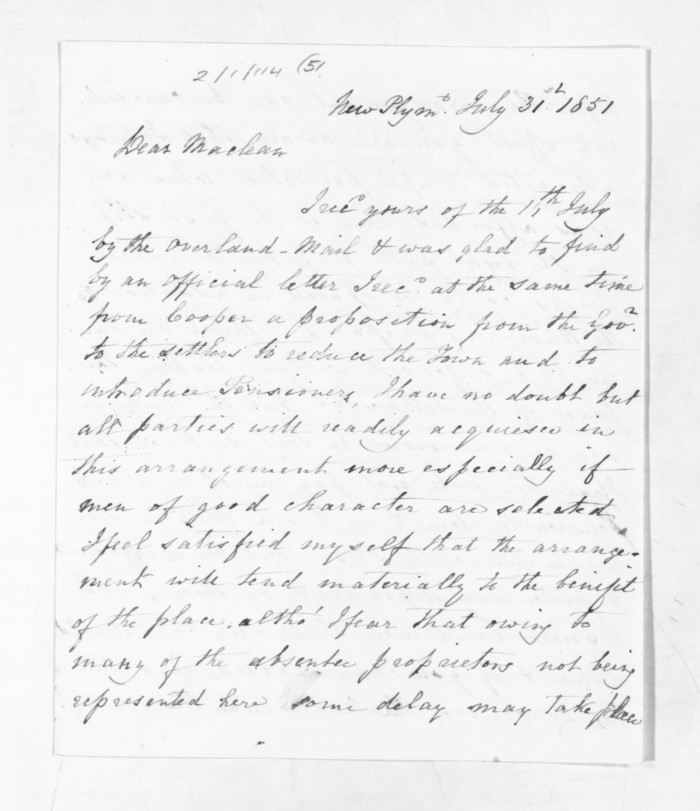 2/1/114 (51
New Plymo. July 31st. 1851
Dear Maclean
I reco yours of the 11th July
by the Overland-Mail & was glad to find
by an official letter I reco. at the same time
from Cooper a proposition from the Govr.
to the settlers to reduce the Town and to
introduce Pensioners, I have no doubt but
all parties will readily acquiesce in
this arrangement more especially if
men of good character are selected
I feel satisfied myself that the arrange-
ment will tend materially to the benifit
of the place, altho' I fear that owing to
many of the absentee proprietors not being
represented here some delay may take place